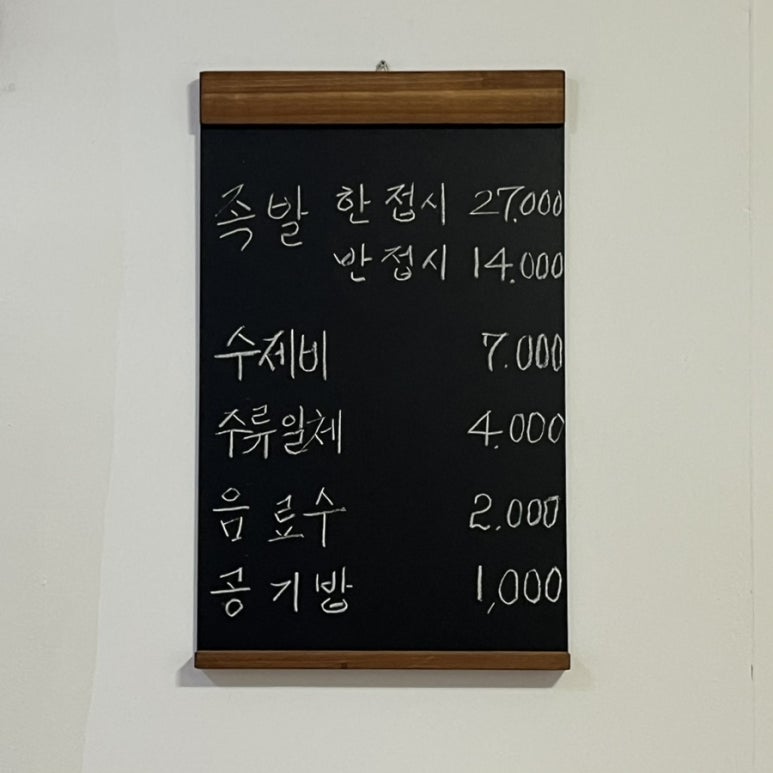 족발 한접시 27.000
반접시 14.000
수제비 7.000
주류일체 4.000
음료수 2.000
공기밥 1,000